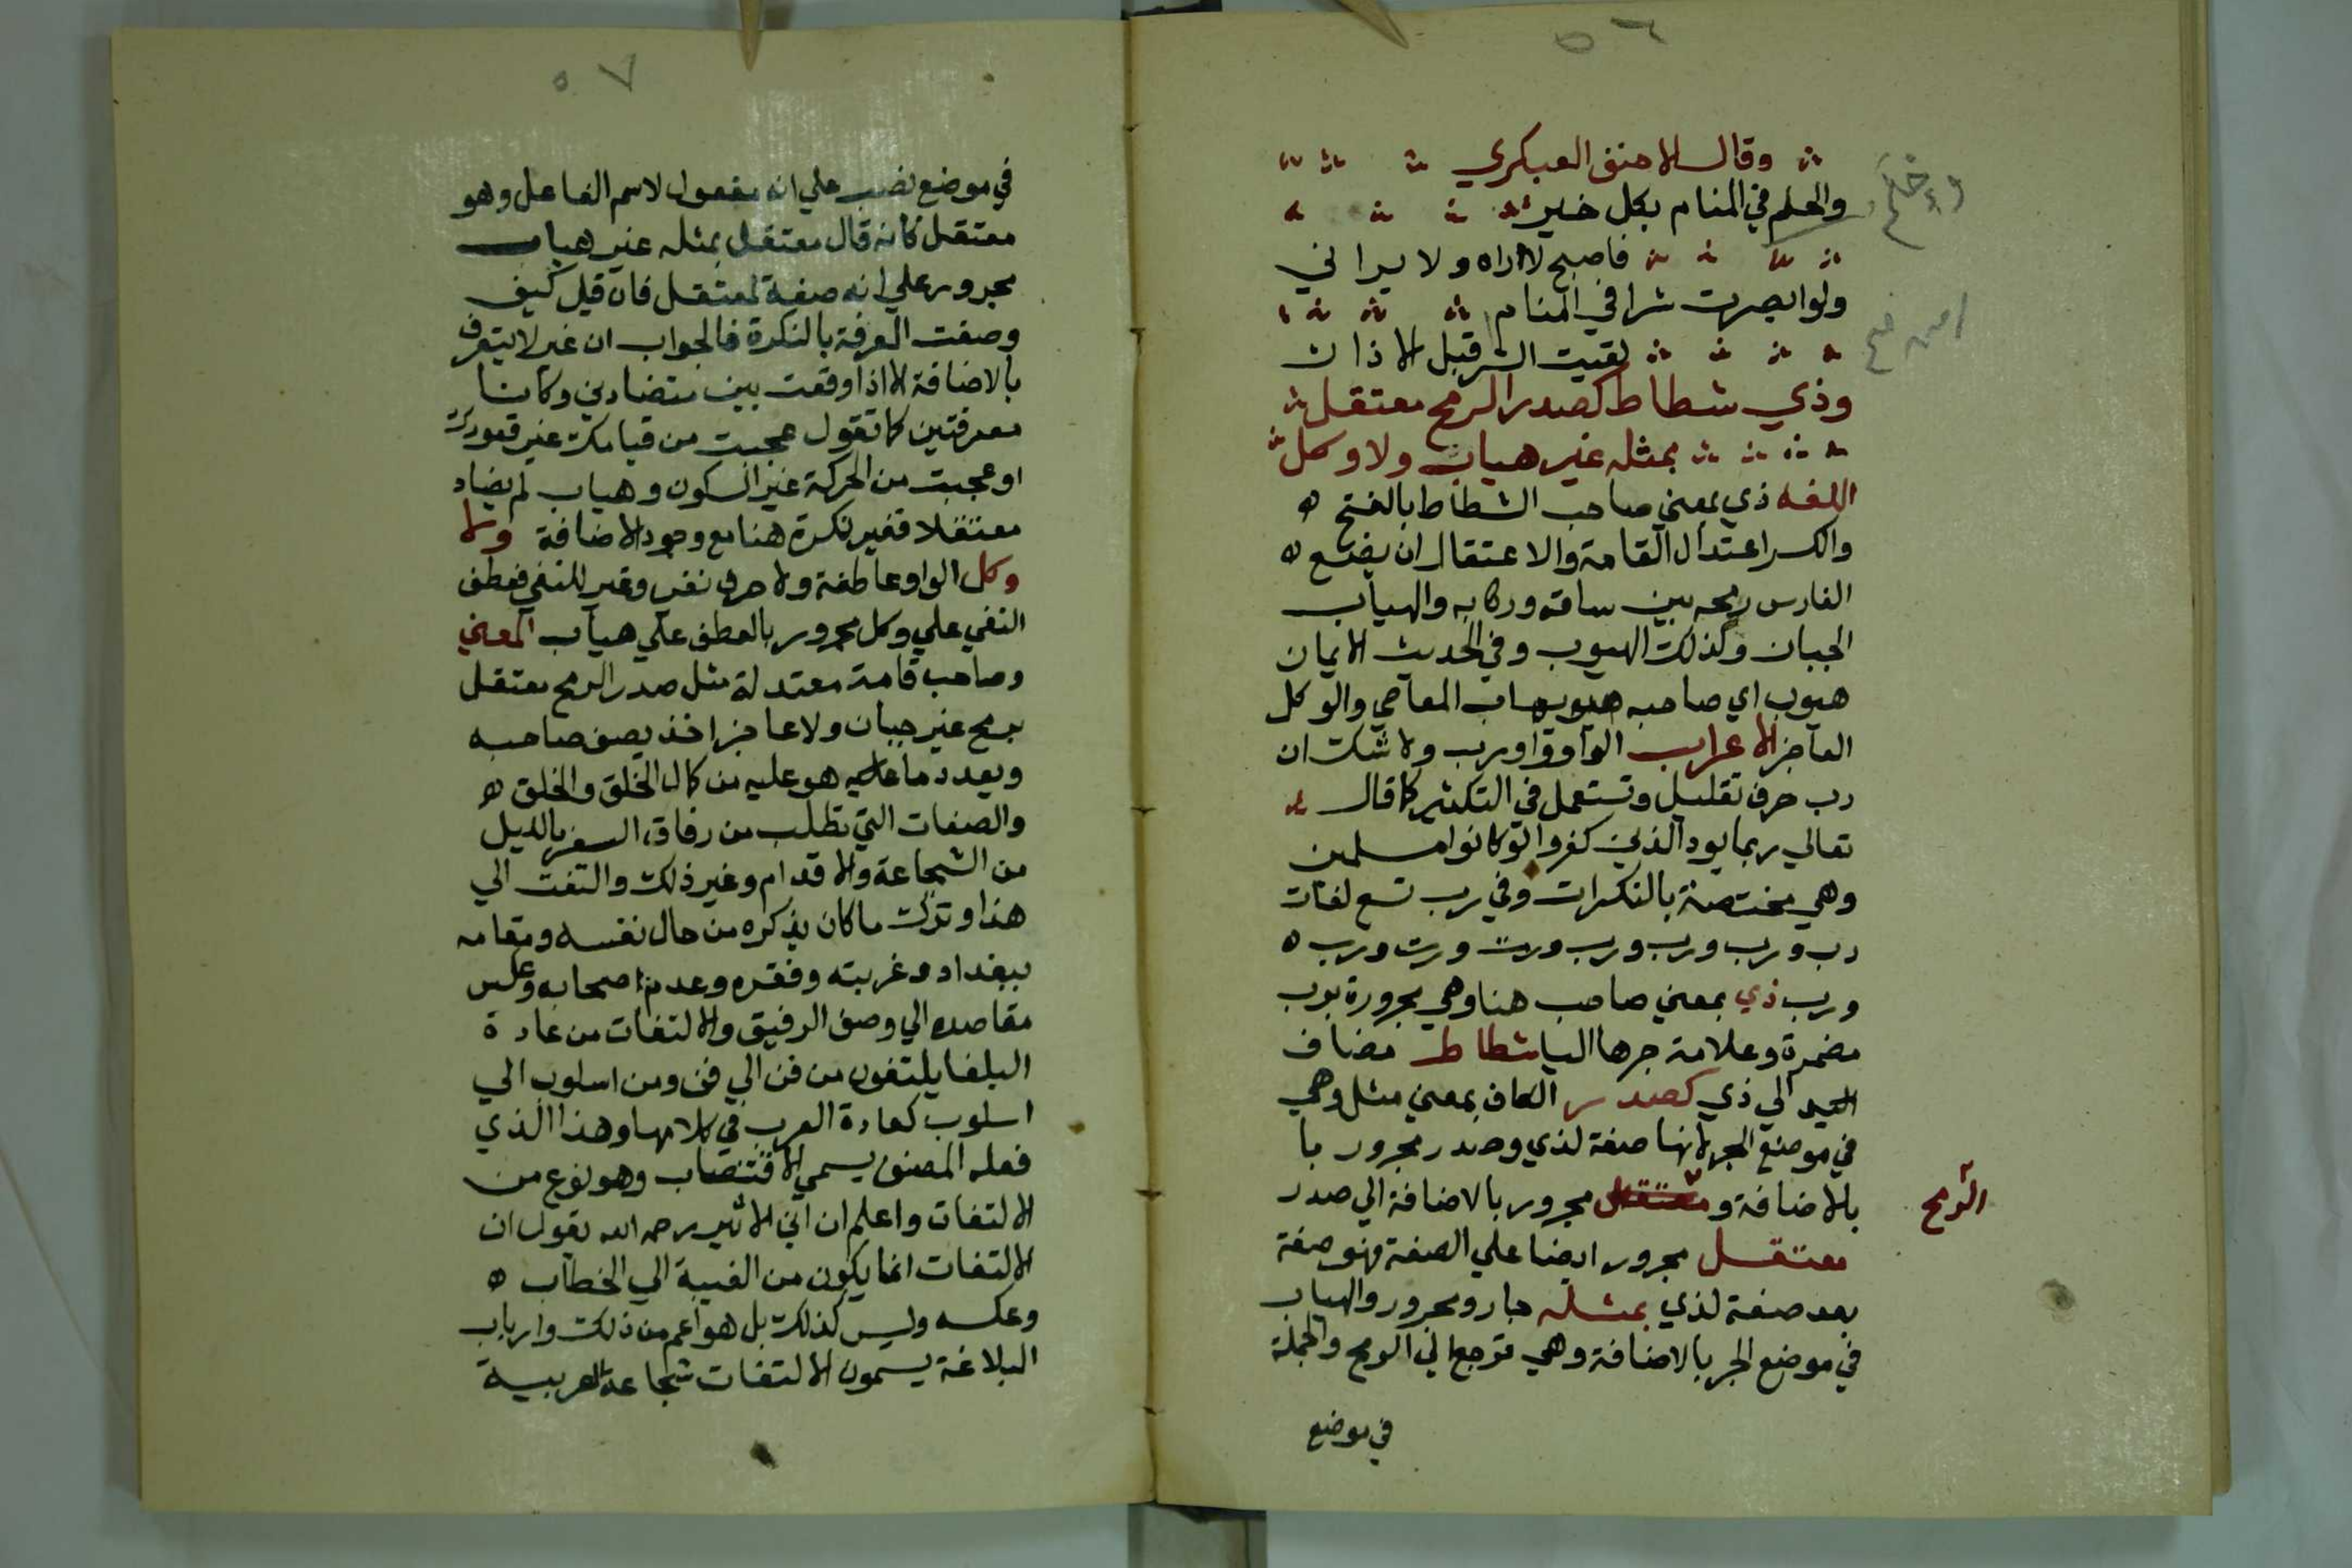 ٥٦
وقال الاحنف العبكري
والحلم في المنام بكل خير
فاصبح لا اراه ولا يراني
ولو ابصرت شرا في المنام
لقيت الشر قبل الاذان
وذي شطاط كصدر الرمح معتقل
بمثله غير هياب ولا وكل
اللغه ذي بمعني صاحب الشطاط بالفتح
والكسر اعتدال القامة والاعتقال ان يضع
الفارس رمحه بين ساقه وركابه والهياب
الجبان وكذلك الهيوب وفي الحديث الايمان
هيوب اي صاحبه يهاب المعاصي والوكل
العاجز الاعراب الواو واو رب ولا شك ان
رب حرف تقليل وتستعمل في التكثير كما قال
تعالي ربما يود الذين كفروا لو كانوا مسلمين
وهي مختصة بالنكرات وفي رب تسع لغات
رب ورب ورب ورب ورت ورت ورب
ورب ذي بمعني صاحب هنا وهي مجرورة برب
مضمرة وعلامة جرها اليا شطاط مضاف
اليه الي ذي كصدر الكاف بمعني مثل وهي
في موضع الجر لانها صفة لذي وصدر مجرور با
بالاضافة و مجرور بالاضافة الي صدر
الرمح
معتقل مجرور ايضا علي الصفة فهو صفة
بعد صفة لذي بمثله جار ومجرور والهياب
في موضع الجر بالاضافة وهي ترجع الي الرمح والجملة
في موضع
٥٧
في موضع نصب علي انه مفعول لاسم الفاعل وهو
معتقل كانه قال معتقل بمثله غير هياب
مجرور علي انه صفة لمعتقل فان قيل كيف
وصفت المعرفة بالنكرة فالجواب ان غير لا يتعرف
بالاضافة الا اذا وقعت بين متضادين وكانتا
معرفتين كما تقول عجبت من قيامك غير قعودك
او عجبت من الحركة غير السكون وهياب لم يضاد
معتقلا فغير نكرة هنا مع وجود الاضافة ولا
وكل الواو عاطفة ولا حرف نفي وغير للنفي فعطف
النفي علي وكل مجرور بالعطف علي هياب المعني
وصاحب قامة معتدلة مثل صدر الرمح معتقل
برمح غير جبان ولا عاجز اخذ يصف صاحبه
ويعدد ما هو عليه من كمال الخلق والخلق
والصفات التي تطلب من رفاق السفر بالليل
من الشجاعة والاقدام وغير ذلك والتفت الي
هذا وترك ما كان يذكره من حال نفسه ومقامه
ببغداد وغربته وفقره وعدم اصحابه وعكس
مقاصده الي وصف الرفيق والالتفات من عادة
البلغا يلتفون من فن الي فن ومن اسلوب الي
اسلوب كعادة العرب في كلامها وهذا الذي
فعله المصنف يسمي الاقتضاب وهو نوع من
الالتفات واعلم ان ابن الاثير رحمه الله يقول ان
الالتفات انما يكون من الغيبة الي الخطاب
وعكسه وليس كذلك بل هو اعم من ذلك وارباب
البلاغة يسمون الالتفات شجاعة العربية